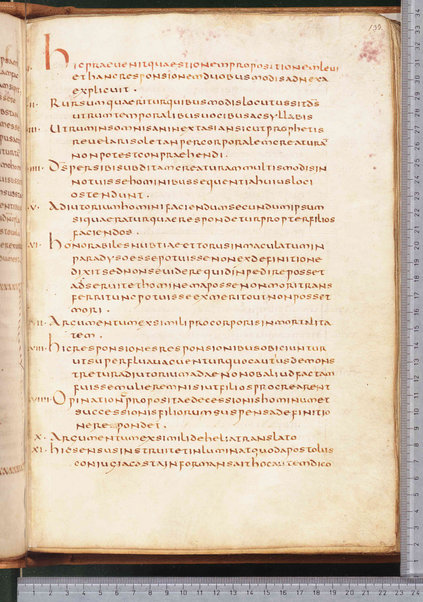 hic praevenit quaestionem propositionem leui
et hanc responsionem duobus modis adnexa
explicuit.
II. Rursum quaeritur quibus modis locutus sit ds
utrum temporalibus vocibus ac syllabis
III. Utrum in somnis an in extasi an sicut prophetis
revelari solet an per corporalem creaturā
non potest conprachendi.
IIII. Ds per sibi subditam creaturam multis modis in
notuisse hominibus sequenti ahuius loci
ostendunt.
V. Adiutorium homini faciendum secundum ipsum
si quaeratur quae respondetur propter filios
faciendos.
VI. honorabiles nubtiae et torus inmaculatum in
paradyso esse potuisse non ex definitione
dixit sed non se videre quid inpedire posset
ad servitethominem aposse non mori trans
ferri tunc potuisse ex merito ut non posset
mori.
VII. Argumentum ex simili pro corporis inmortalita
tem.
VIII. hic responsiones responsionibus obiciuntur
ut superflua vacuentur quo cautius demons
tretur adiutorium adae non ob aliud factam
fuisse mulierem nisi ut filios procrearent
VIIII. Opinationē propositae decessionis hominum et
successionis filiorum suspensa definitio
ne respondet.
X. Argumentum ex simili de helia translato
XI. hic sensus instruitet inluminat quod apostolus
coniugia costa informans ait hoc autem dico